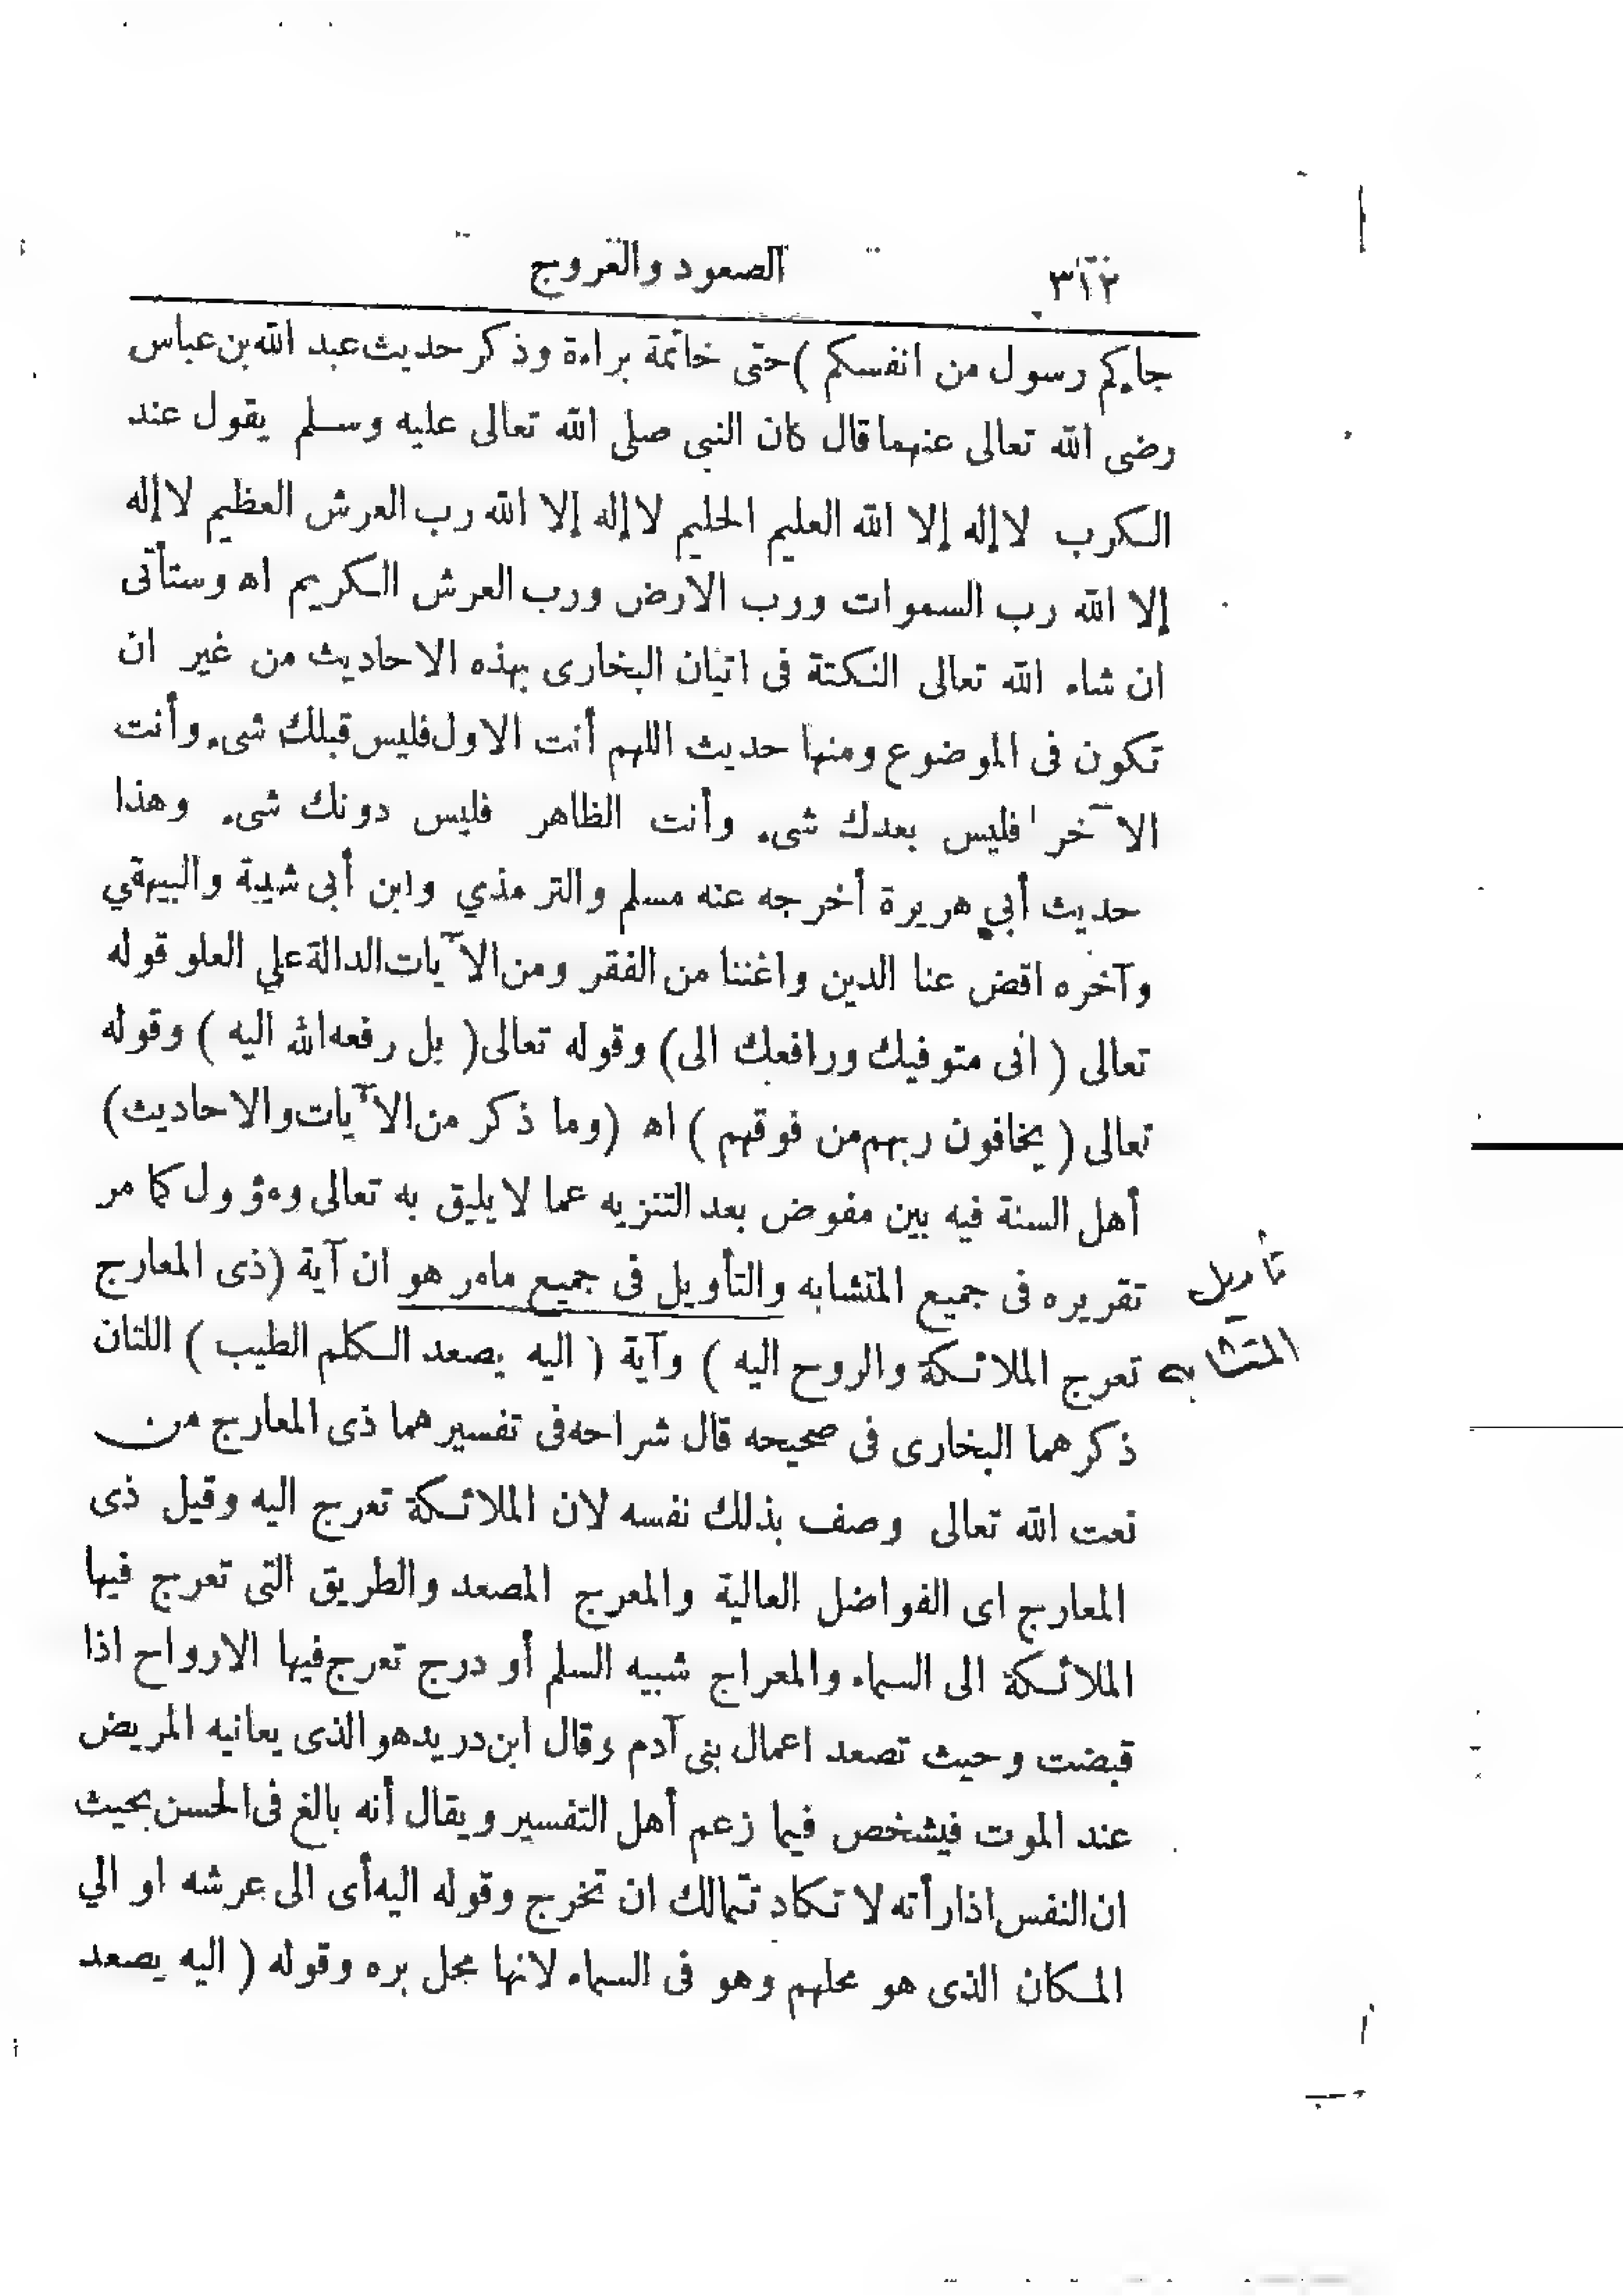 ٣١٢
الصعود والعروج
جاءكم رسول من انفسكم ) حتى خاتمة براءة وذكر حديث عبد الله بن عباس
رضى الله تعالى عنهما قال كان النبى صلى الله تعالى عليه وسلم يقول عند
الكرب لا إله إلا الله العليم الحليم لا إله إلا الله رب العرش العظيم لا إله
إلا الله رب السموات ورب الارض ورب العرش الكريم اه وستأتى
ان شاء الله تعالى النكتة فى اتيان البخارى بهذه الاحاديث من غير ان
تكون فى الموضوع ومنها حديث اللهم أنت الاول فليس قبلك شىء وأنت
الآخر فليس بعدك شىء وأنت الظاهر فليس دونك شىء وهذا
حديث أبي هريرة أخرجه عنه مسلم والترمذي وابن أبى شيبة والبيهقي
وآخره اقض عنا الدين واغننا من الفقر ومن الآيات الدالة علي العلو قوله
تعالى ( انى متوفيك ورافعك الى ) وقوله تعالى ( بل رفعه الله اليه ) وقوله
تعالى ( يخافون ربهم من فوقهم ) اه ( وما ذكر من الآيات والاحاديث )
أهل السنة فيه بين مفوض بعد التنزيه عما لا يليق به تعالى ومؤول كما مر
تقريره فى جميع المتشابه والتأويل فى جميع مامر هو ان آية ( ذى المعارج
تأويل
تعرج الملائكة والروح اليه ) وآية ( اليه يصعد الكلم الطيب ) اللتان
المتشابه
ذكرهما البخارى فى صحيحه قال شراحه فى تفسيرهما ذى المعارج من
نعت الله تعالى وصف بذلك نفسه لان الملائكة تعرج اليه وقيل ذى
المعارج اى الفواضل العالية والمعرج المصعد والطريق التى تعرج فيها
الملائكة الى السماء والمعراج شبيه السلم أو درج تعرج فيها الارواح اذا
قبضت وحيث تصعد اعمال بنى آدم وقال ابن دريد هو الذى يعانيه المريض
عند الموت فيشخص فيما زعم أهل التفسير ويقال أنه بالغ فى الحسن بحيث
ان النفس اذا رأته لا تكاد تتمالك ان تخرج وقوله اليه أى الى عرشه او الي
المكان الذى هو محلهم وهو فى السماء لانها محل بره وقوله ( اليه يصعد